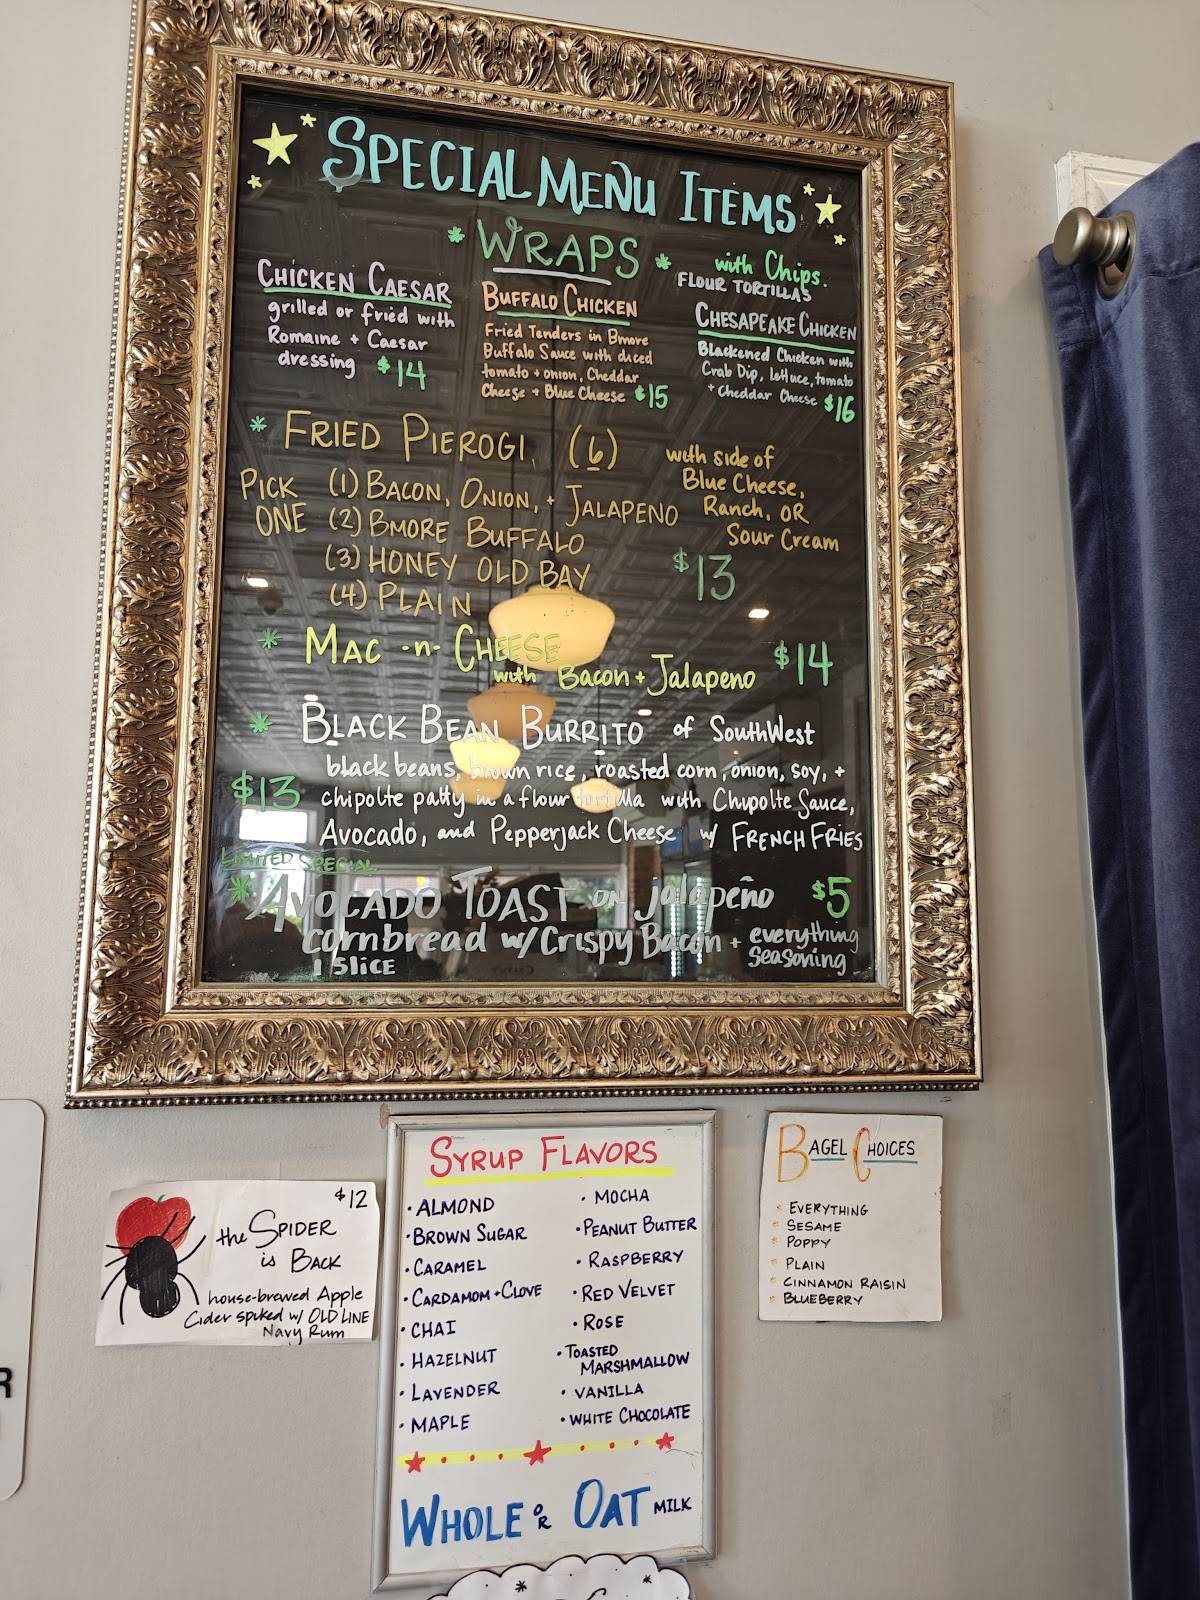 SPECIAL MENU ITEMS
WRAPS
with Chips.
FLOUR TORTILLAS
CHICKEN CAESAR
grilled or fried with
Romaine + Caesar
dressing $14
BUFFALO CHICKEN
Fried Tenders in Bmore
Buffalo Sauce with diced
tomato + onion, Cheddar
Cheese + Blue Cheese $15
CHESAPEAKE CHICKEN
Blackened Chicken with
Crab Dip, Lettuce, tomato
+ Cheddar Cheese $16
FRIED PIEROGI (6)
with side of
Blue Cheese,
Ranch, OR
Sour Cream
$13
PICK
ONE
(1) BACON, ONION, + JALAPENO
(2) BMORE BUFFALO
(3) HONEY OLD BAY
(4) PLAIN
MAC -n- CHEESE
with Bacon + Jalapeno $14
BLACK BEAN BURRITO of SouthWest
black beans, brown rice, roasted corn, onion, soy, +
$13 chipolte patty in a flour tortilla with Chipolte Sauce,
Avocado, and Pepperjack Cheese w/ FRENCH FRIES
LIMITED SPECIAL
AVOCADO TOAST on jalapeño $5
cornbread w/ Crispy Bacon + everything
seasoning
1 Slice
$12
the SPIDER
is BACK
house-brewed Apple
Cider spiked w/ OLD LINE
Navy Rum
SYRUP FLAVORS
• ALMOND
• BROWN SUGAR
• CARAMEL
• CARDAMOM + CLOVE
• CHAI
• HAZELNUT
• LAVENDER
• MAPLE
• MOCHA
• PEANUT BUTTER
• RASPBERRY
• RED VELVET
• ROSE
• TOASTED
MARSHMALLOW
• VANILLA
• WHITE CHOCOLATE
WHOLE OR OAT MILK
BAGEL CHOICES
• EVERYTHING
• SESAME
• POPPY
• PLAIN
• CINNAMON RAISIN
• BLUEBERRY
R